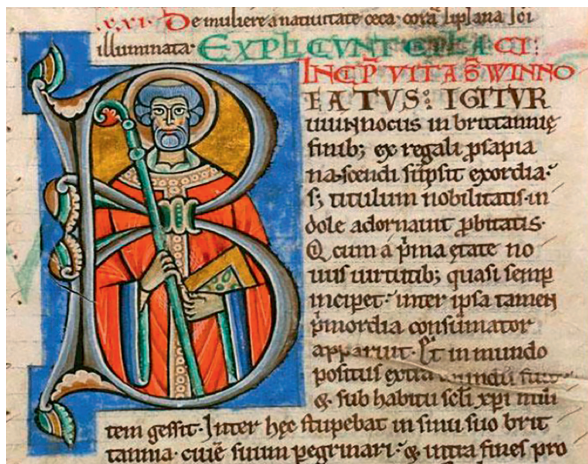 xxi. De muliere a nativitate ceca. cora
illuminata. EXPLICVNT
INCP VITA S WINNO
EATVS: IGITVR
uuinnocus in brittannię
finib; ex regali psapia
nascendi sūpsit exordia.
s; titulum nobilitatis in
dole adornauit pbitatis.
Q cum a pma etate no
uus uirtutib; quasi semp
inciper. inter ipsa tamen
pmordia consūmator
apparuit. Et in mundo
positus extra mundū
& sub habitu scli xpi mili
tem gessit. Inter hęc stupebat in sinu suo brit
tannia. ciuē suum pegrinari. & intra fines pro